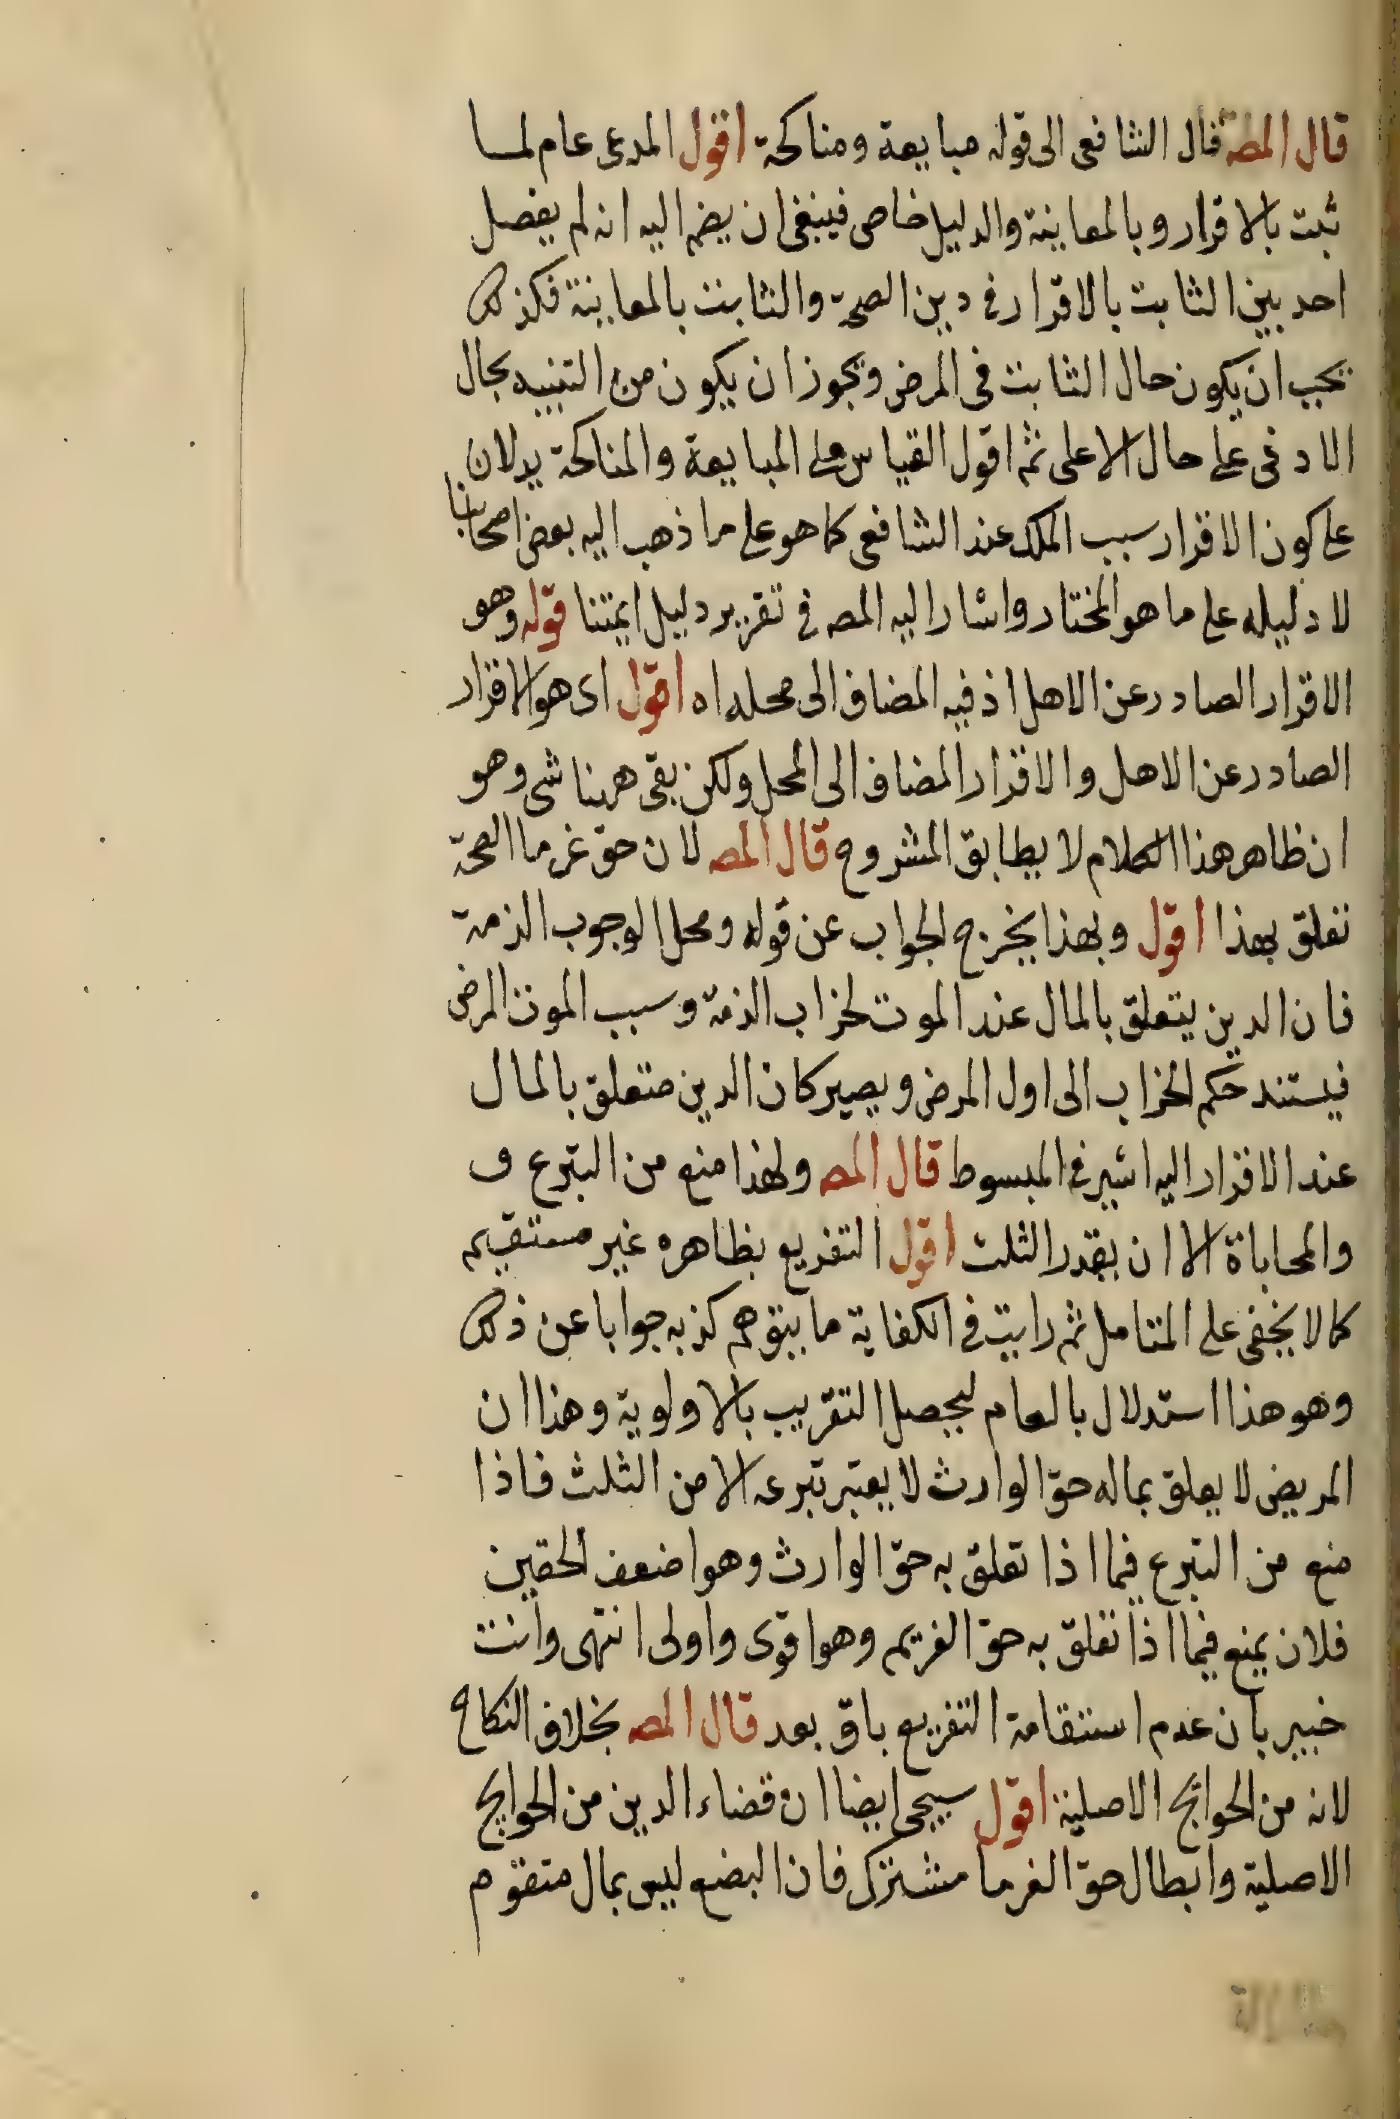 قال المصة قال الشافعى الى قوله مبايعة ومناكحة اقول المدعى عام لما
ثبت بالاقرار وبالمعاينة والدليل خاص فينبغى ان يضم اليه انه لم يفصل
احد بين الثابت بالاقرار فى دين الصحة والثابت بالمعاينة فكذلك
يجب ان يكون حال الثابت فى المرض ويجوز ان يكون من التنبيه بحال
الادنى على حال الاعلى ثم اقول القياس على المبايعة والمناكحة يدلان
على كون الاقرار سبب الملك عند الشافعى كما هو على ما ذهب اليه بعض اصحابنا
لا دليله على ما هو المختار واشار اليه المصه فى تقرير دليل ايمتنا قوله وهو
الاقرار الصادر عن الاهل اذ فيه المضاف الى محله اه اقول اى هو الاقرار
الصادر عن الاهل والاقرار المضاف الى المحل ولكن بقى ههنا شى وهو
ان ظاهر هذا الكلام لا يطابق المشروح قال المصه لان حق غرما الصحة
تعلق بهذا اقول وبهذا يخرج الجواب عن قوله ومحل الوجوب الذمة
فان الدين يتعلق بالمال عند الموت لخراب الذمة وسبب الموت المرض
فيستند حكم الخراب الى اول المرض ويصير كان الدين متعلق بالمال
عند الاقرار اليه اشير فى المبسوط قال المصه ولهذا منع من التبرع و
والمحاباة الا ان بقدر الثلث اقول التفريع بظاهره غير مستقيم
كما لا يخفى على المتامل ثم رايت فى الكفاية ما يتوهم كذبه جوابا عن ذلك
وهو هذا استدلال بالعام ليحصل التقريب بالاولوية وهذا ان
المريض لا يعلق بماله حق الوارث لا يعتبر تبرعه الا من الثلث فاذا
منع من التبرع فيما اذا تعلق به حق الوارث وهو اضعف الحقين
فلان يمنع فيما اذا تعلق به حق الغريم وهو اقوى واولى انتهى وانت
خبير بان عدم استقامة التفريع باق بعد قال المصه بخلاف النكاح
لانه من الحوايج الاصلية اقول سيجى ايضا ان قضاء الدين من الحوايج
الاصلية وابطال حق الغرما مشترك فان البضع ليس بمال متقوم